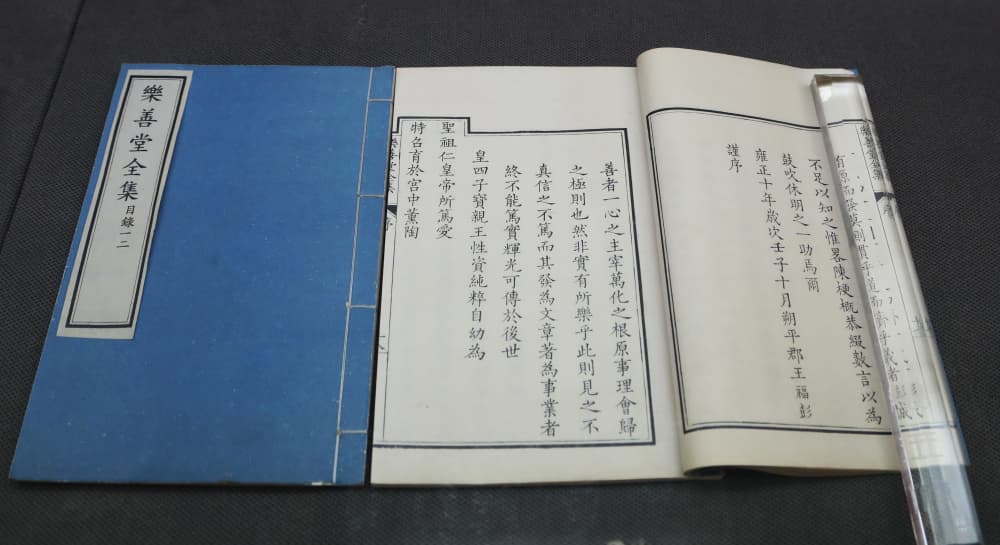 樂善堂全集 目錄一二
不足以知之惟畧陳梗概恭綴數言以為
鼓吹休明之一助焉爾
雍正十年歲次壬子十月朔平郡王福彭
謹序
善者一心之主宰萬化之根原事理會歸
之極則也然非實有所樂乎此則見之不
真信之不篤而其發為文章著為事業者
終不能篤實輝光可傳於後世
皇四子寶親王性資純粹自幼為
聖祖仁皇帝所篤愛
特召育於宮中薰陶
樂善堂全集